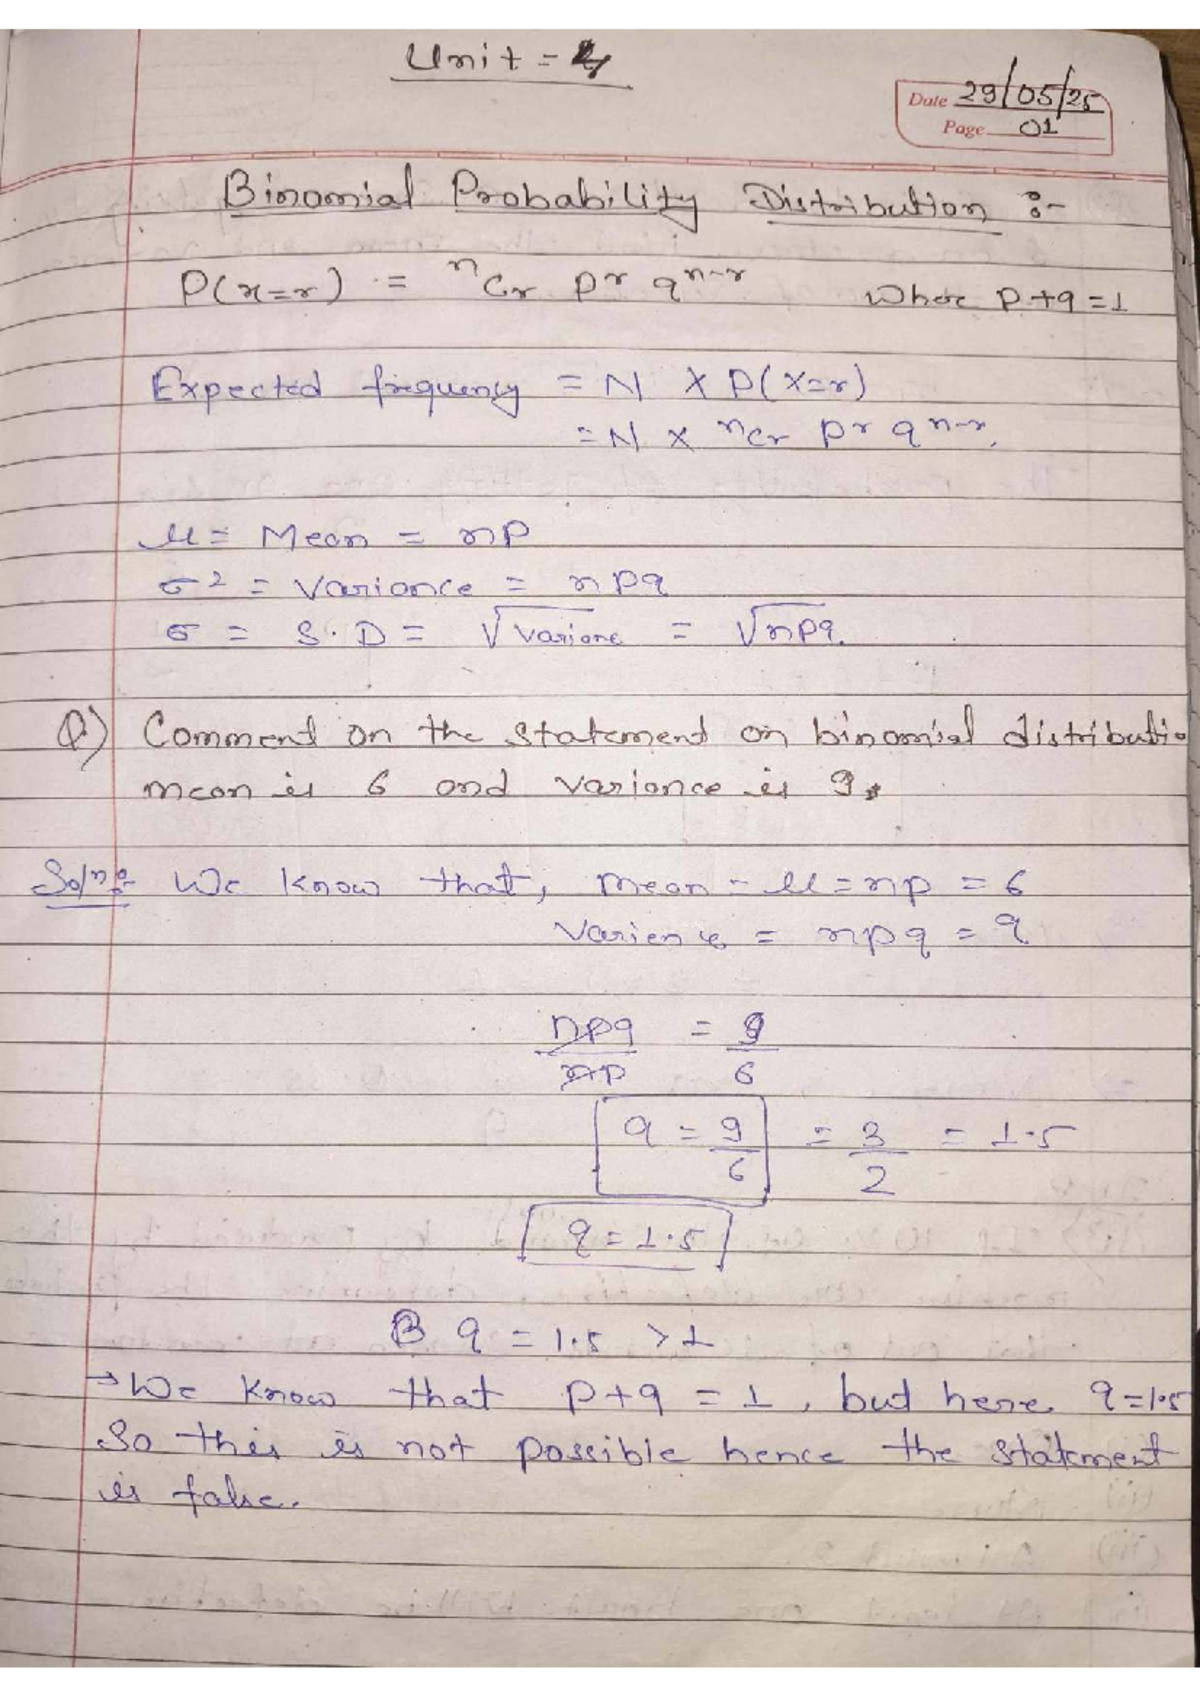 Unit = 4
Date 29/05/25
Page 01
Binomial Probability Distribution :-
P(x=r) = ⁿCr pʳ qⁿ⁻ʳ Where p+q=1
Expected frequency = N × P(x=r)
= N × ⁿCr pʳ qⁿ⁻ʳ.
μ = Mean = np
σ² = Variance = npq
σ = S.D = √Varianc = √npq.
Q) Comment on the statement on binomial distributio
mean is 6 and variance is 9.
Solⁿ:- We know that, mean = μ = np = 6
Varience = npq = 9
npq/np = 9/6
q = 9/6 = 3/2 = 1.5
q = 1.5
B q = 1.5 > 1
→ We know that p+q = 1, but here q = 1.5
So this is not possible hence the statement
is false.